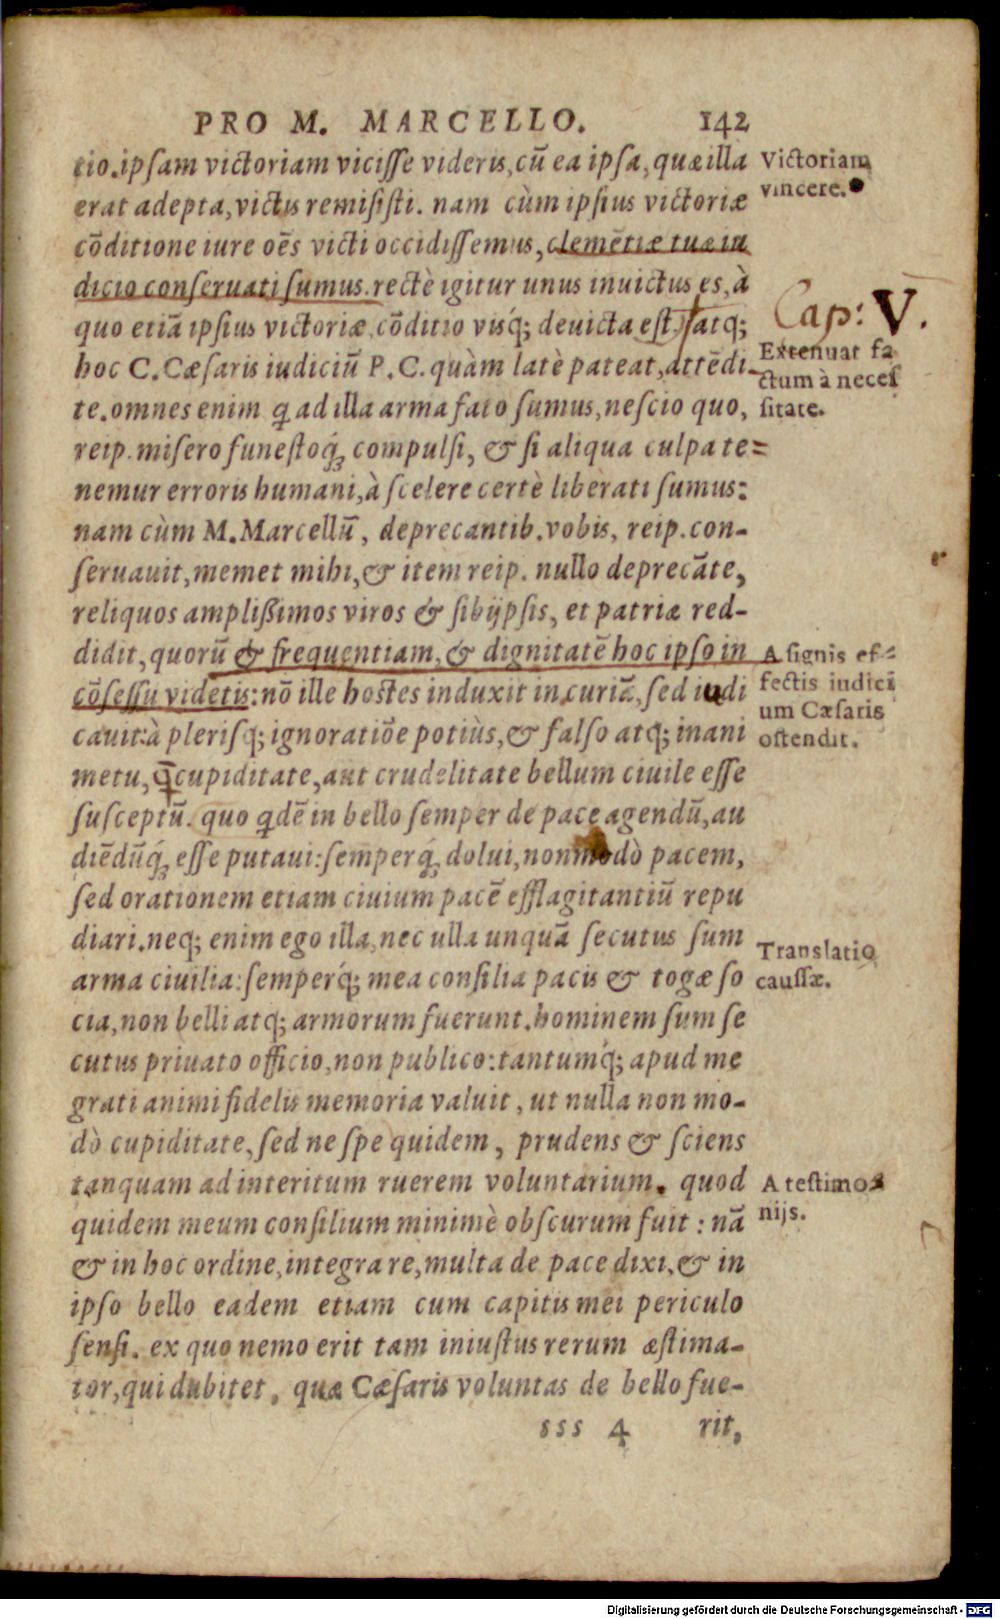 PRO M. MARCELLO. 142
tio. ipsam victoriam vicisse videris, cū ea ipsa, quæ illa
erat adepta, victis remisisti. nam cùm ipsius victoriæ
cōditione iure oēs victi occidissemus, clemētiæ tuæ iu
dicio conseruati sumus. rectè igitur unus inuictus es, à
quo etiā ipsius victoriæ cōditio visq́; deuicta est. atq;
hoc C. Cæsaris iudiciū P. C. quàm latè pateat, attēdi-
te. omnes enim q ad illa arma fato sumus, nescio quo,
reip. misero funestoq́; compulsi, & si aliqua culpa te=
nemur erroris humani, à scelere certè liberati sumus:
nam cùm M. Marcellū, deprecantib. vobis, reip. con-
seruauit, memet mihi, & item reip. nullo deprecāte,
reliquos amplißimos viros & sibijpsis, et patriæ red-
didit, quorū & frequentiam, & dignitatē hoc ipso in
cōsessu videtis: nō ille hostes induxit in curiā, sed iudi
cauit: à plerisq; ignoratiōe potiùs, & falso atq; inani
metu, q̄ cupiditate, aut crudelitate bellum ciuile esse
susceptū. quo qdē in bello semper de pace agendū, au
diēdūq́; esse putaui: semperq́; dolui, non modò pacem,
sed orationem etiam ciuium pacē efflagitantiū repu
diari. neq; enim ego illa, nec ulla unquā secutus sum
arma ciuilia: semperq́; mea consilia pacis & togæ so
cia, non belli atq; armorum fuerunt. hominem sum se
cutus priuato officio, non publico: tantumq́; apud me
grati animi fidelis memoria valuit, ut nulla non mo-
dò cupiditate, sed ne spe quidem, prudens & sciens
tanquam ad interitum ruerem voluntarium. quod
quidem meum consilium minimè obscurum fuit: nā
& in hoc ordine, integra re, multa de pace dixi, & in
ipso bello eadem etiam cum capitis mei periculo
sensi. ex quo nemo erit tam iniustus rerum æstima-
tor, qui dubitet, quæ Cæsaris voluntas de bello fue-
sss 4 rit,
Victoriam
vincere.
Cap: V.
Extenuat fa
ctum à neces
sitate.
A signis ef-
fectis iudici
um Cæsaris
ostendit.
Translatio
caussæ.
A testimo-
nijs.
Digitalisierung gefördert durch die Deutsche Forschungsgemeinschaft - DFG